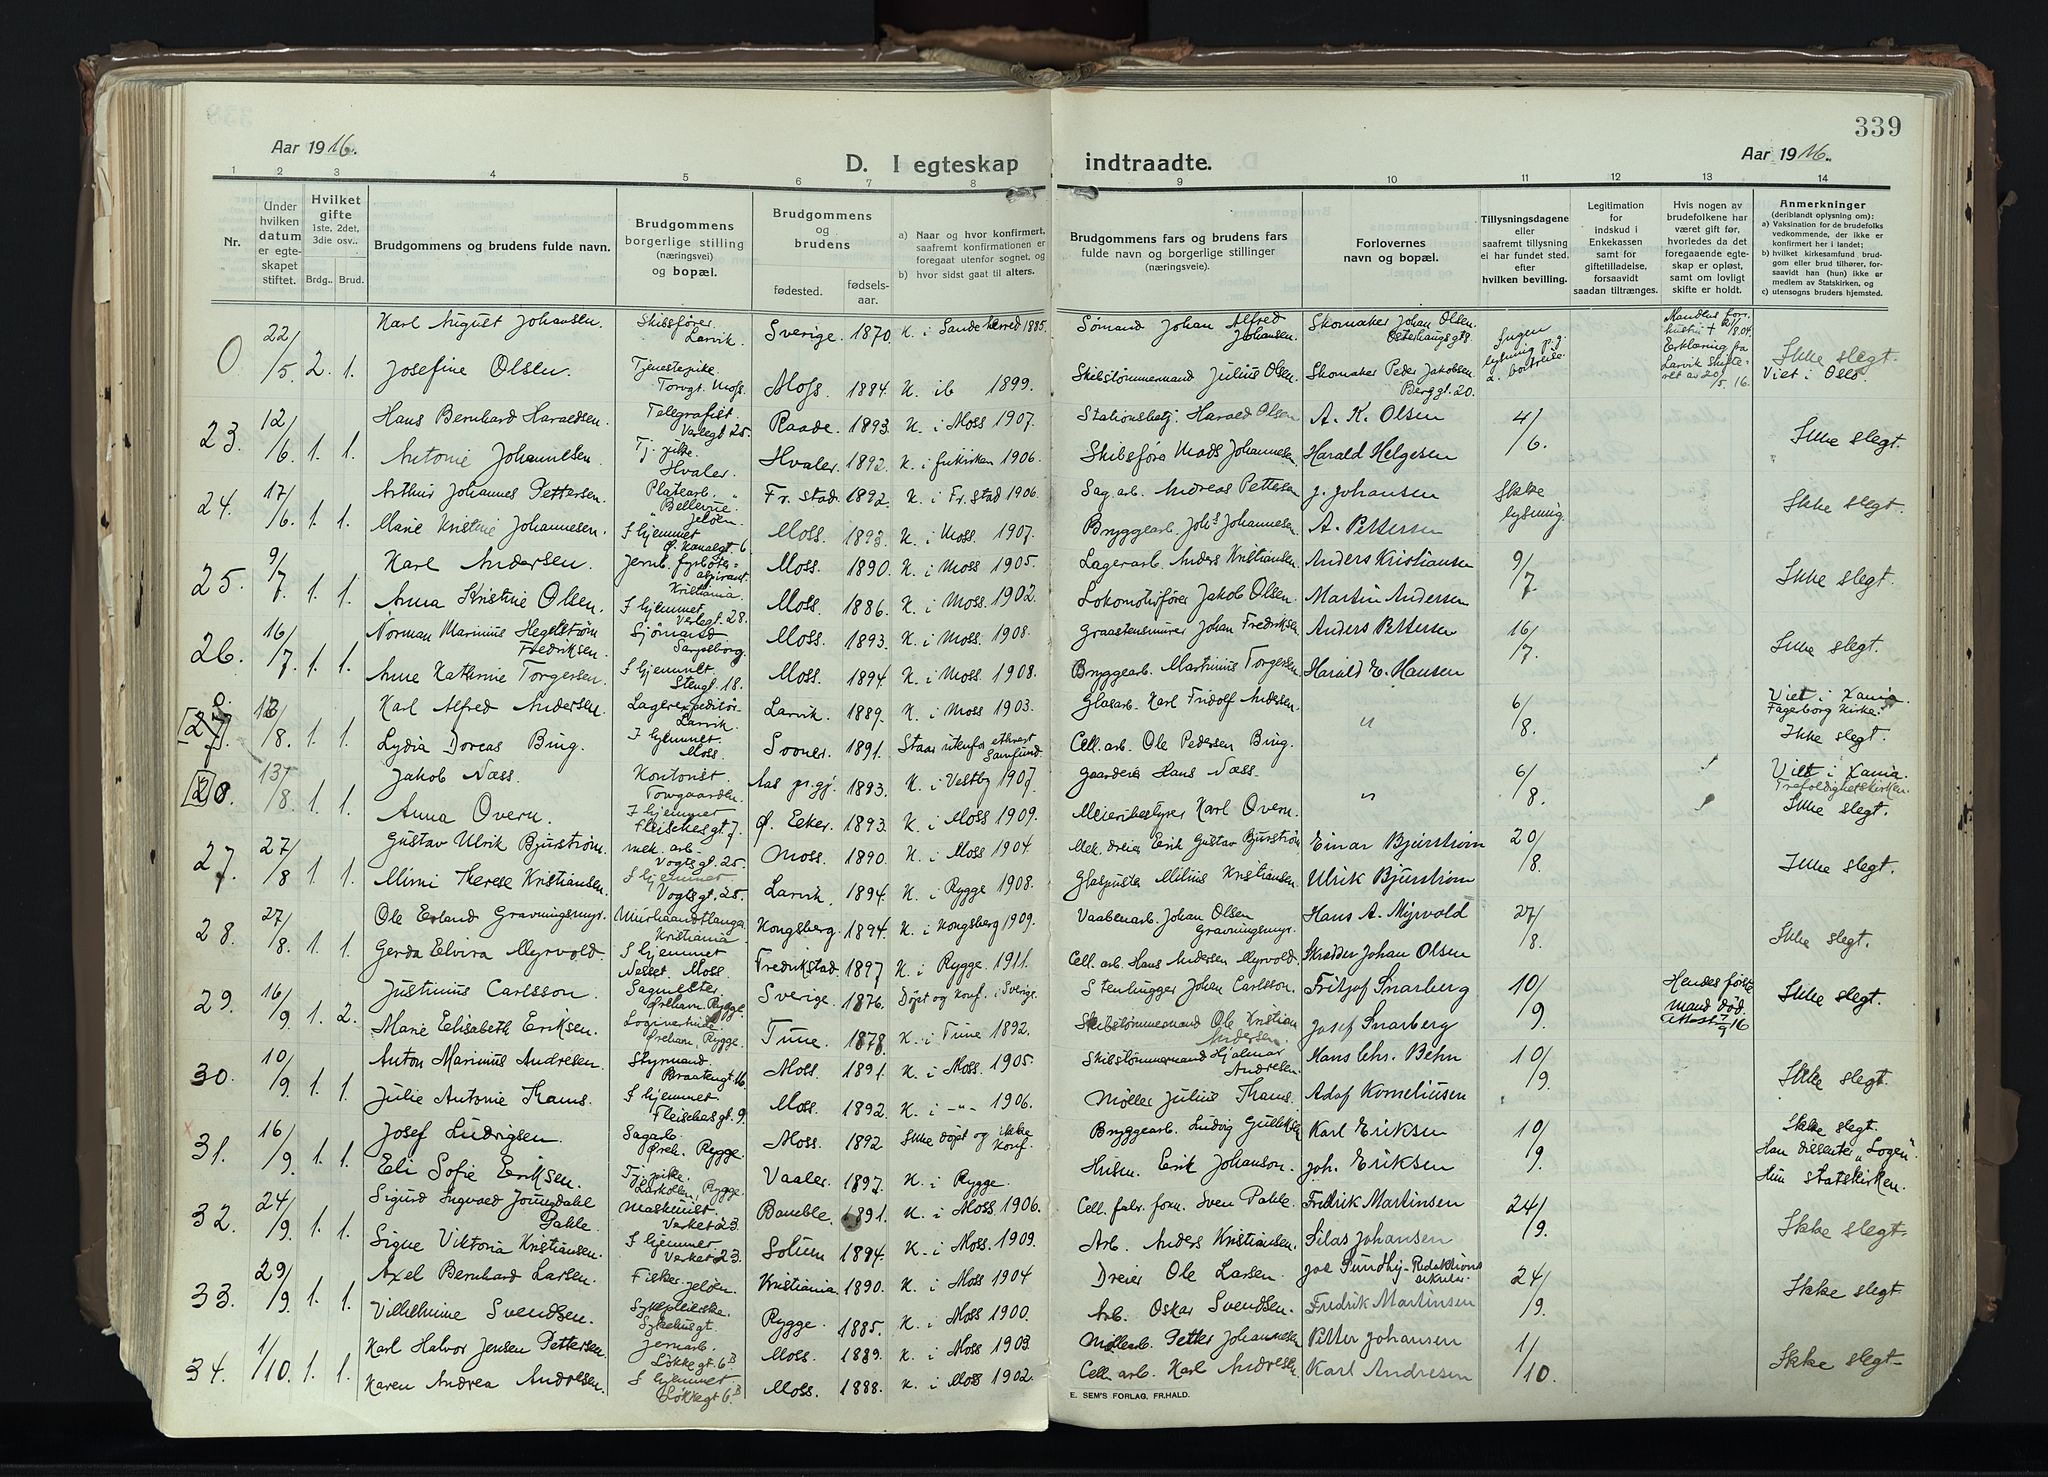 339
Aar 1916.
D. I egteskap indtraadte.
Aar 1916.
1 2 3 4 5 6 7 8 9 10 11 12 13 14
Nr.
Under hvilken datum er egteskapet stiftet.
Hvilket gifte 1ste, 2det, 3die osv..
Brdg.. Brud.
Brudgommens og brudens fulde navn.
Brudgommens borgerlige stilling (næringsvei) og bopæl.
Brudgommens og brudens
fødested. fødselsaar.
a) Naar og hvor konfirmert, saafremt konfirmationen er foregaat utenfor sognet, og
b) hvor sidst gaat til alters.
Brudgommens fars og brudens fars fulde navn og borgerlige stillinger (næringsveie).
Forlovernes navn og bopæl.
Tillysningsdagene eller saafremt tillysning ei har fundet sted. efter hvilken bevilling.
Legitimation for indskud i Enkekassen samt for giftetilladelse, forsaavidt saadan tiltrænges.
Hvis nogen av brudefolkene har været gift før, hvorledes da det foregaaende egteskap er opløst, samt om lovligt skifte er holdt.
Anmerkninger (deriblandt oplysning om):
a) Vaksination for de brudefolks vedkommende, der ikke er konfirmert her i landet;
b) hvilket kirkesamfund brudgom eller brud tilhører, forsaavidt han (hun) ikke er medlem av Statskirken, og
c) utensogns bruders hjemsted.
0 22/5 2. 1. Karl August Johansen. Skibsfører. Larvik. Sverige. 1870. K. i Sandeherred 1885. Sømand Johan Alfred Johansen. Skomaker Johan Olsen. Ingen lysning
Josefine Olsen. Tjenestepike. Torvgt. Moss. Moss. 1884. K. ib 1899. Skibstømmermand Julius Olsen. Skomaker Peder Jakobsen. Berggt. 20. Erklæring fra Larvik Skifteret av 20/5. 16. Ikke slegt. Viet i Oslo.
23. 12/6. 1. 1. Hans Bernhard Haraldsen. Telegrafist. Varlegt 25. Raade. 1893. K. i Moss 1907. Harald Olsen A. K. Olsen 4/6. Ikke slegt.
Antonie Johannesen. Tj. pike. Hvaler. Hvaler. 1892. K. i frikirken 1906. Skibsfører Mads Johannesen. Harald Helgesen
24. 17/6. 1. 1. Arthur Johannes Pettersen. Platearb. Bellevue. Jeløen. Fr. stad. 1892. K. i Fr. stad 1906. Sag. arb. Andreas Pettersen J. Johansen Ikke lysning. Ikke slegt.
Marie Kristine Johannesen. I hjemmet Ø. Kanalgt. 6 Moss. 1893. K. i Moss. 1907. Bryggearb. Johs Johannesen A. Pettersen
25. 9/7. 1. 1. Karl Andersen. Jernb. fyrbøteraspirant. Kristiania. Moss. 1890. K. i Moss 1905. Lagerarb. Anders Kristiansen. Anders Kristiansen 9/7. Ikke slegt.
Anna Kristine Olsen. I hjemmet. Verlegt. 28. Moss. 1886. K. i Moss. 1902. Lokomotivfører Jakob Olsen. Martin Andersen
26. 16/7. 1. 1. Norman Marinius Hegelstrøm Fredriksen. Sjømand Sarpsborg. Moss. 1893. K. i Moss. 1908. Graastensmurer Johan Fredriksen. Anders Pettersen 16/7. Ikke slegt.
Anne Kathrine Torgersen. I hjemmet. Stengt. 18. Moss. 1894. K. i Moss 1908. Bryggearb. Martinius Torgersen Harald E. Hansen
[27]. 0. /8. 1. 1. Karl Alfred Andersen. Lagerexpeditør. Larvik. Larvik. 1889. K. i Moss 1903. Glasarb. Karl Fridolf Andersen. " 6/8. Viet i Xania. Fagerborg kirke. Ikke slegt.
Lydia Dorcas Bing. I hjemmet Moss. 1891. Staar utenfor ethvert Samfund. Cell. arb. Ole Pedersen Bing.
13/8. 1. 1. Jakob Næss. Kontorist. Torvgaarden. Aas pr.gj. 1893. K. i Vestby 1907. Gaardeier Hans Næss. " 6/8. Viet i Xania. Trefoldighetskirken. Ikke slegt.
Anna Overn. I hjemmet Fleischesgt 7. Ø. Eeker. 1893 K. i Moss 1909. Meieribestyrer Karl Overn.
27. 27/8 1. 1. Gustav Ulrik Bjurstrøm. mek. arb. Vogtsgt. 25. Moss. 1890. K. i Moss 1904. Mek. dreier Erik Gustav Bjurstrøm Einar Bjurstrøm 20/8. Ikke slegt.
Mimi Therese Kristiansen. I hjemmet. Vogtsgt. 25. Larvik. 1894. K. i Rygge 1908. Glaspuster Milius Kristiansen. Ulrik Bjurstrøm
28. 27/8. 1. 1. Ole Erland Gravningsmyr. Murhaandlanger Kristiania. Kongsberg. 1894. K. i Kongsberg 1909. Vaabenarb. Johan Olsen Gravningsmyr. Hans A. Myrvold 27/8. Ikke slegt.
Gerda Elvira Myrvold. I hjemmet Nesset. Moss. Fredrikstad. 1897 K. i Rygge. 1911. Cell. arb. Hans Andersen Myrvold. Skrædder Johan Olsen
29. 16/9 1. 2. Justinius Carlsson. Sagmester Ørehavn, Rygge. Sverige. 1876. Døpt og konf. i Sverige. Stenhugger Johan Carlsson. Fritjof Snarberg 10/9. Hendes første mand død. Attest 7/9 16 Ikke slegt.
Marie Elisabeth Eriksen. Logivertinde Ørehavn, Rygge. Tune. 1878. K. i Tune 1892. Skibstømmermand Ole Kristian Andersen. Josef Snarberg
30. 10/9. 1. 1. Anton Marinius Andresen. Styrmand. Braatengt 16 Moss. 1891. K. i Moss. 1905. Skibstømmermand Hjalmar Andresen. Hans Chr. Behn 10/9. Ikke slegt.
Julie Antonie Thams. I hjemmet. Fleischesgt. 9. Moss. 1892. K. i -"- 1906. Møller Julius Thams. Adof Korneliusen
31. 16/9. 1. 1. Josef Ludvigsen. Sagarb. Øreh. Rygge. Moss. 1892 Ikke døpt og ikke konf. Bryggearb. Ludvig Gulliksen Karl Eriksen 10/9. Ikke slegt. Han dissenter "Logen". Hun Statskirken.
Eli Sofie Eriksen. Tj. pike. Larkollen, Rygge. Vaaler. 1897. K. i Rygge. Husm. Erik Johanson. Joh. Eriksen
32. 24/9. 1. 1. Sigurd Ingvald Pahle. Maskinist. Verket 23. Bamble. 1891. K. i Moss 1906. Cell. fabr. form. Sven Pahle. Fredrik Martinsen 24/9. Ikke slegt.
Signe Viktoria Kristiansen. I hjemmet Verket 23. Solum 1894. K. i Moss. 1909. Arb. Anders Kristiansen. Silas Johansen
33. 29/9. 1. 1. Axel Bernhard Larsen. Fisker. Jeløen. Kristiania. 1890. K. i Moss 1904 Dreier Ole Larsen. Joe Sundby - 24/9. Ikke slegt
Vilhelmine Svendsen. Sykepleierske. Sykehusgt. Rygge. 1885. K. i Moss 1900. Arb. Oskar Svendsen. Fredrik Martinsen
34. 1/10. 1. 1. Karl Halvor Jensen Pettersen. Jernarb. Løkkegt. 6B Moss. 1889. K. i Moss 1903. Møllearb. Petter Johannesen Petter Johansen 1/10. Ikke slegt
Karen Andrea Andresen. I hjemmet Løkkegt 6B Moss. 1888. K. i Moss 1902. Cell. arb. Karl Andresen Karl Andresen
E. SEM'S FORLAG, FR.HALD.